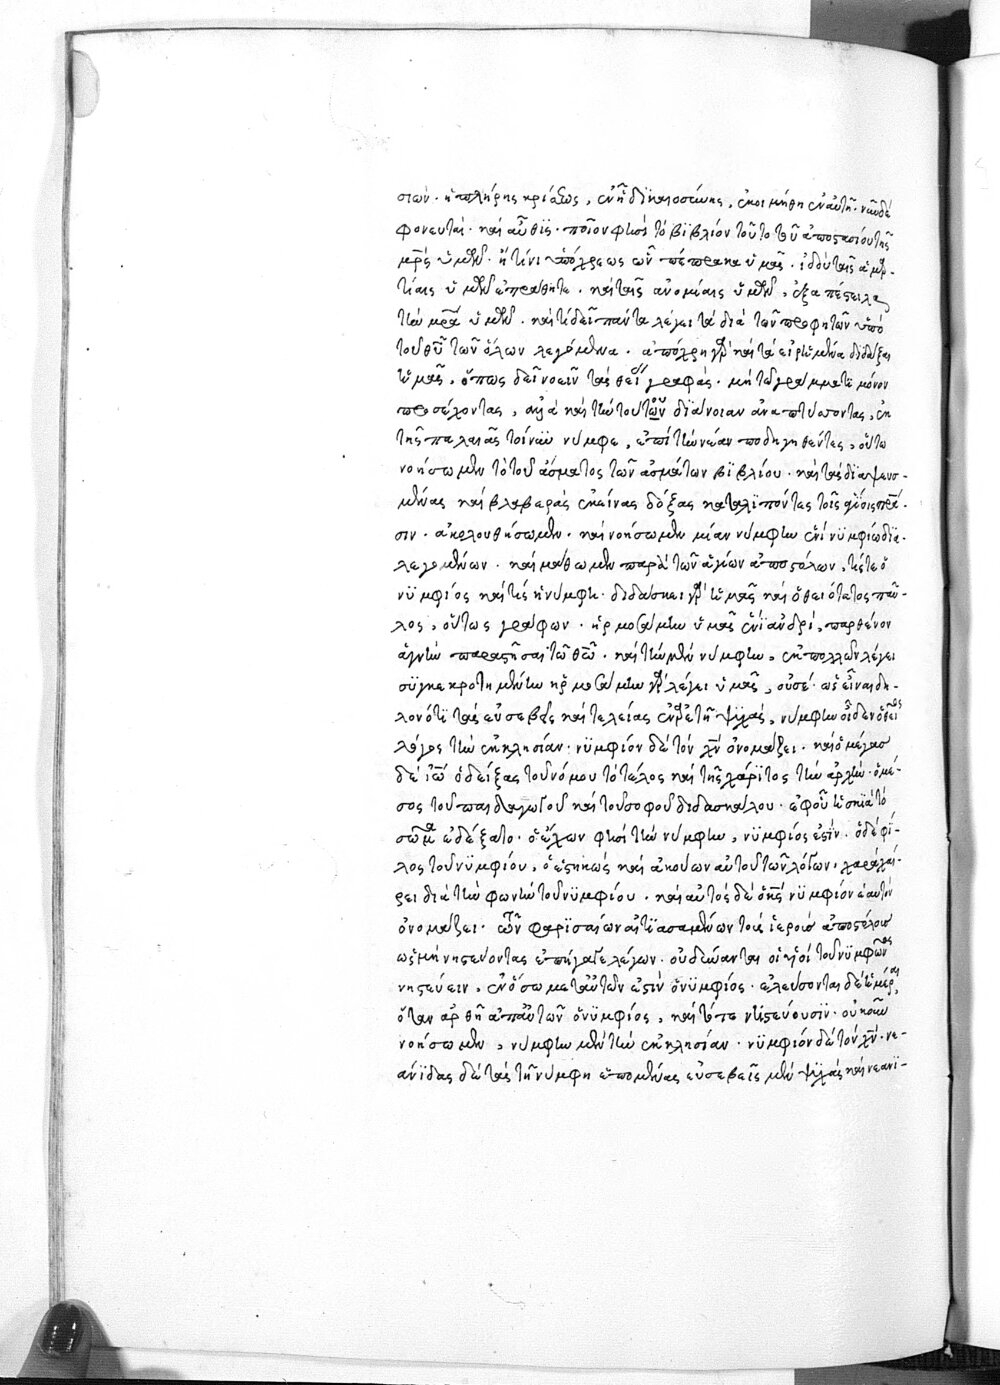 σιων· ἡ πλήρης κρίσεως, ἐν ᾗ δικαιοσύνης, ἐκοιμήθη ἐν αὐτῇ· νῦν δὲ
φονευταί· καὶ αὖθις· ποῖον φησὶ τὸ βιβλίον τοῦτο τοῦ ἀποστασίου τῆς
μρ̅ς ὑμῶν· ἢ τίνι ὑπόχρεως ὢν πέπρακα ὑμᾶς· ἰδοὺ ταῖς ἁμαρ-
τίαις ὑμῶν ἐπράθητε· καὶ ταῖς ἀνομίαις ὑμῶν, ἐξαπέστειλα
τὴν μρ̅α ὑμῶν· καὶ τί δεῖ πάντα λέγειν τὰ διὰ τῶν προφητῶν ὑπὸ
τοῦ θυ̅ τῶν ὅλων λεγόμενα· ἀπόχρη γὰρ καὶ τὰ εἰρημένα διδάξαι
ὑμᾶς, ὅπως δεῖ νοεῖν τὰς θείας γραφάς· μὴ τῷ γράμματι μόνον
προσέχοντας, ἀλλὰ καὶ τὴν τούτων διάνοιαν ἀναπτύσσοντας, ἐκ
τῆς παλαιᾶς τοίνυν νύμφης, ἐπὶ τὴν νέαν ποδηγηθέντες, οὕτω
νοήσωμεν τὸ τοῦ ἄσματος τῶν ἀσμάτων βιβλίον· καὶ τὰς διεψευσ-
μένας καὶ βλαβερὰς ἐκείνας δόξας καταλιπόντες τοῖς ἁγίοις πρά-
σιν· ἀκολουθήσωμεν· καὶ νοήσωμεν μίαν νύμφην ἑνὶ νυμφίῳ δια-
λεγομένην· καὶ μάθωμεν παρὰ τῶν ἁγίων ἀποστόλων, τίς τε ὁ
νυμφίος καὶ τίς ἡ νύμφη· διδάσκει γὰρ ἡμᾶς καὶ ὁ θειότατος παῦ-
λος, οὕτως γράφων· ἡρμοσάμην ὑμᾶς ἑνὶ ἀνδρί, παρθένον
ἁγνὴν παραστῆσαι τῷ θῶ· καὶ τὴν μὲν νύμφην, ἐκ πολλῶν λέγει
συγκεκροτημένην ἡρμοσάμην γὰρ λέγει ὑμᾶς, οὐ σέ· ὡς εἶναι δη-
λονότι τὰς εὐσεβεῖς καὶ τελείας ἐν ἀρετῇ ψυχάς, νύμφην οἶδεν ὁ θεῖος
λόγος τὴν ἐκκλησίαν· νυμφίον δὲ τὸν χν̅ ὀνομάζει· καὶ ὁ μέγας
δὲ ἰω̅ ὁ δείξας τοῦ νόμου τὸ τέλος καὶ τῆς χάριτος τὴν ἀρχήν· ὁ μέ-
σος τοῦ παιδαγωγοῦ καὶ τοῦ σοφοῦ διδασκάλου· ἐφ᾿ οὗ ἡ σκιὰ τὸ
σῶμα ἐδέξατο· ὁ ἔχων φησὶ τὴν νύμφην, νυμφίος ἐστίν· ὁ δὲ φί-
λος τοῦ νυμφίου, ὁ ἑστηκὼς καὶ ἀκούων αὐτοῦ τῶν λόγων, χαρᾷ χαί-
ρει διὰ τὴν φωνὴν τοῦ νυμφίου· καὶ αὐτὸς δὲ ὁ κς̅ νυμφίον ἑαυτὸν
ὀνομάζει· τῶν φαρισαίων αἰτιασαμένων τοὺς ἱεροὺς ἀποστόλους
ὡς μὴ νηστεύοντας ἐπήγαγε λέγων· οὐ δύνανται οἱ υἱοὶ τοῦ νυμφῶνος
νηστεύειν, ἐν ὅσῳ μετ᾿ αὐτῶν ἐστὶν ὁ νυμφίος· ἐλεύσονται δὲ ἡμέραι,
ὅταν ἀρθῇ ἀπ᾿ αὐτῶν ὁ νυμφίος, καὶ τότε νηστεύσουσιν· οὐκοῦν
νοήσωμεν, νύμφην μὲν τὴν ἐκκλησίαν· νυμφίον δὲ τὸν χν̅· νε-
άνιδας δὲ τὰς τῇ νύμφῃ ἑπομένας εὐσεβεῖς μὲν ψυχὰς καὶ νεανι-